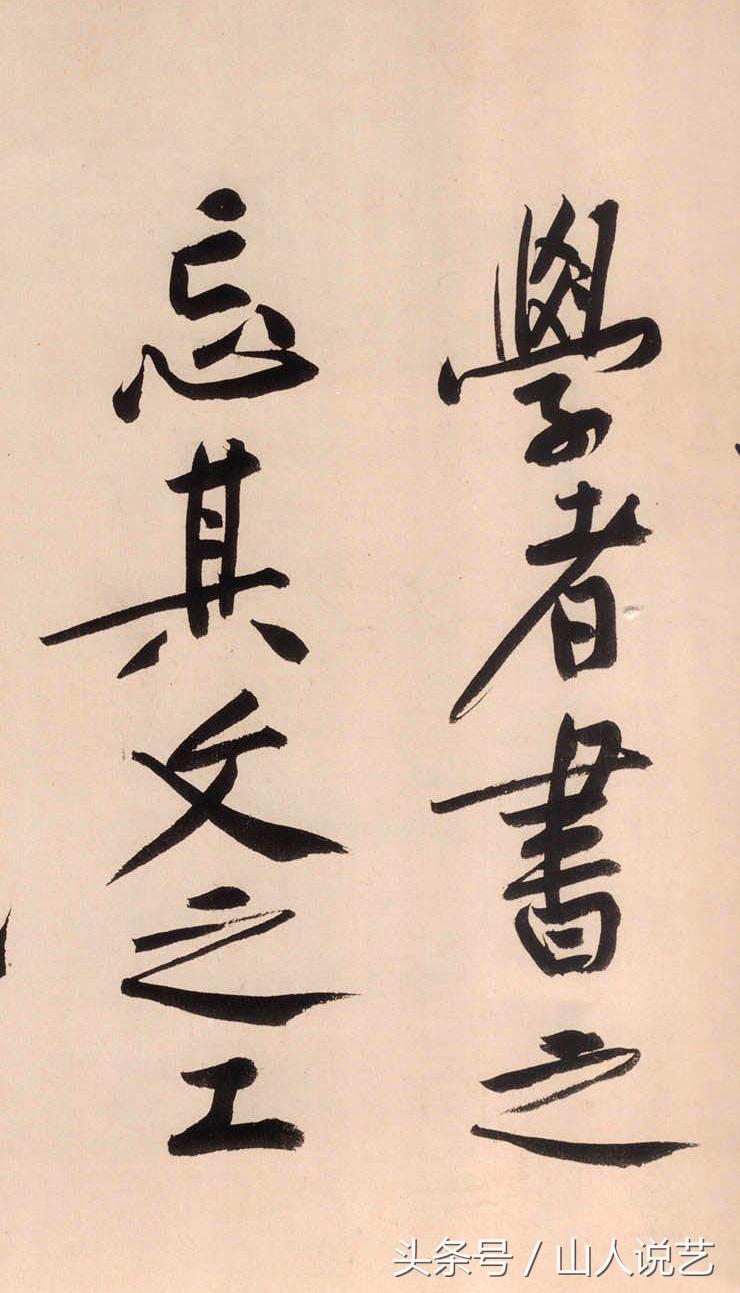 學者書之
忘其文之工
头条号 / 山人说艺